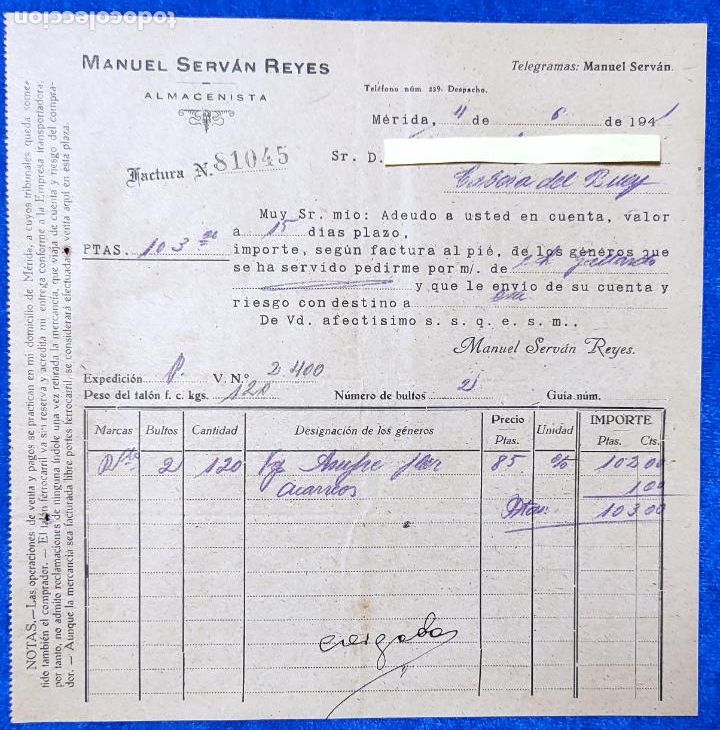 todocoleccion
MANUEL SERVÁN REYES
ALMACENISTA
Telegramas: Manuel Serván.
Teléfono núm. 239. Despacho.
Mérida, 11 de 6 de 1941
Factura N. 81045
Sr. D.
Cabeza del Buey
PTAS. 103
Muy Sr. mio: Adeudo a usted en cuenta, valor
a 15 días plazo,
importe, según factura al pié, de los géneros que
se ha servido pedirme por m/. de
y que le envio de su cuenta y
riesgo con destino a esa
De Vd. afectisimo s. s. q. e. s. m.,
Manuel Serván Reyes.
Expedición P. V. N.º 2400
Peso del talón f. c. kgs. 120 Número de bultos 2 Guía núm.
Marcas Bultos Cantidad Designación de los géneros Precio Ptas. Unidad IMPORTE Ptas. Cts.
2 120 Azufre flor 85 % 102 00
Acarreos 1 00
Ptas. 103 00
cargado
NOTAS.—Las operaciones de venta y pagos se practican en mi domicilio de Mérida, a cuyos tribunales queda some-
tido también el comprador. — El talón ferrocarril va sin reserva y acredita mi entrega conforme a la Empresa transportadora;
por tanto, no admito reclamaciones de ninguna índole una vez retirada la mercancía, que viaja de cuenta y riesgo del compra-
dor. — Aunque la mercancía sea facturada libre portes ferrocarril, se considerará efectuada la venta aquí en esta plaza.